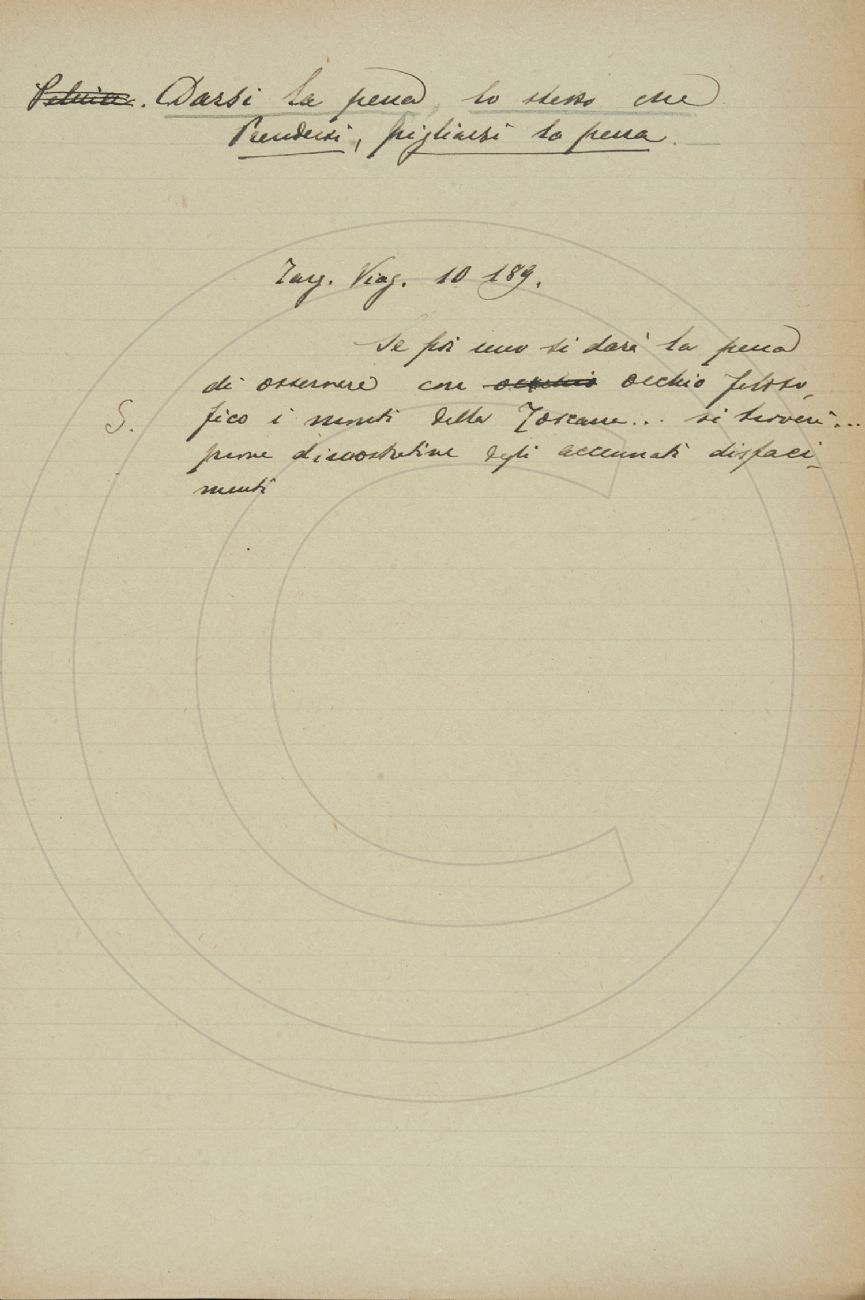 Darsi la pena, lo stesso che
Prendersi, pigliarsi la pena.
Targ. Viag. 10 189.
Se poi uno si darà la pena
di osservare con occhio filoso-
S. fico i monti della Toscana... si troverà...
prove dimostrative degli accennati disfaci-
menti